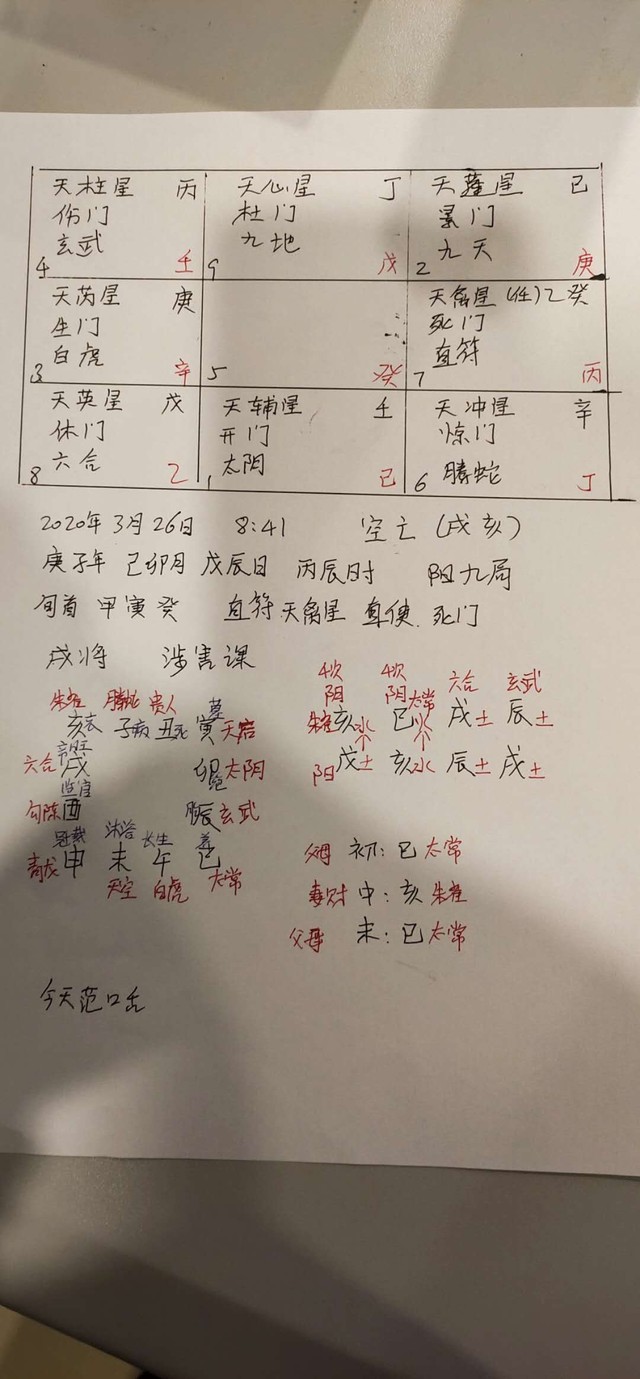 天柱星 丙 天心星 丁 天蓬星 己
伤门 杜门 景门
玄武 九地 九天
4 壬 9 戊 2 庚
天芮星 庚 天禽星(任)乙癸
生门 死门
白虎 直符
3 辛 5 癸 7 丙
天英星 戊 天辅星 壬 天冲星 辛
休门 开门 惊门
六合 太阴 腾蛇
8 乙 1 己 6 丁
2020年3月26日 8:41 空亡(戌亥)
庚子年 己卯月 戊辰日 丙辰时 阳九局
旬首 甲寅癸 直符.天禽星 直使.死门
戌将 涉害课
朱雀 腾蛇 贵人 墓
亥衰 子病 丑死 寅天后
六合 戌 卯 太阴
勾陈 酉 辰 玄武
冠戴 沐浴 长生 养
青龙 申 未 午 巳
天空 白虎 太常
4次 4次
阴 阴 太常 六合 玄武
朱雀 亥水 巳火 戌土 辰土
阳 戊土 亥水 辰土 戌土
父母 初:巳 太常
妻财 中:亥 朱雀
父母 末:巳 太常
今天范口舌